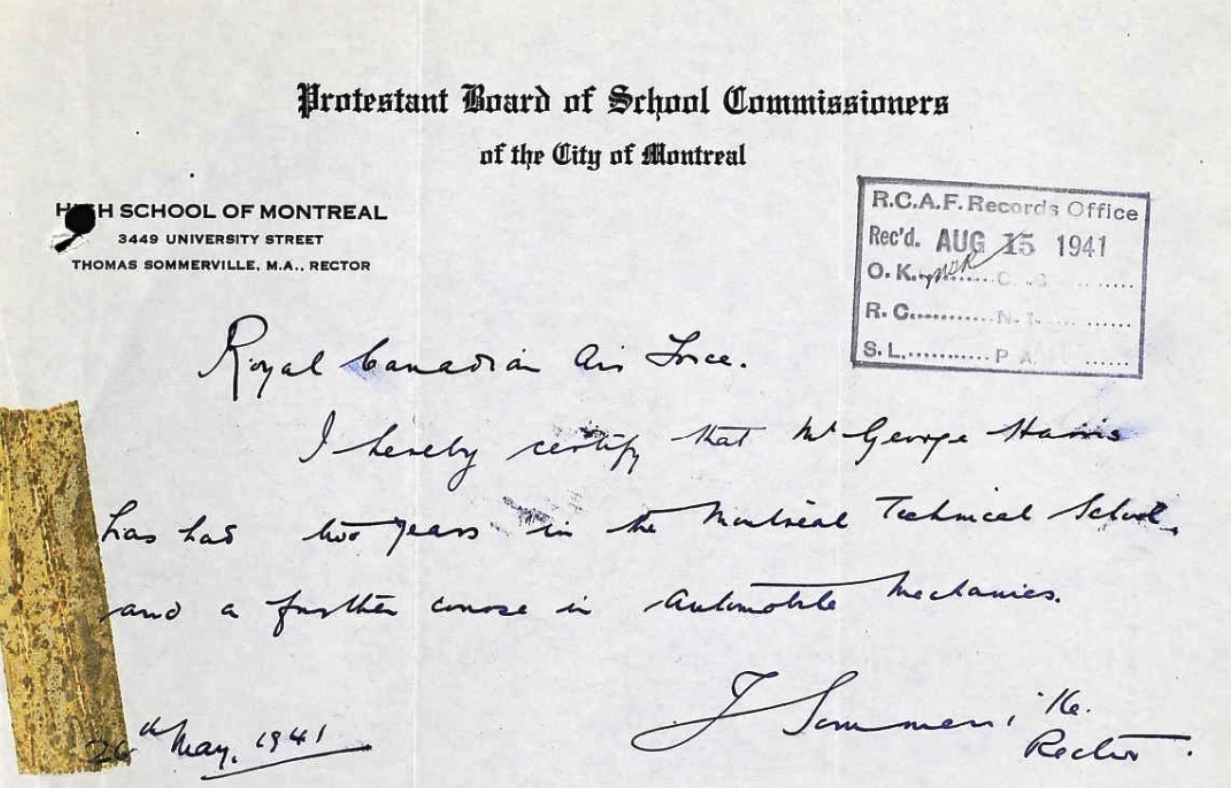 Protestant Board of School Commissioners
of the City of Montreal
HIGH SCHOOL OF MONTREAL
3449 UNIVERSITY STREET
THOMAS SOMMERVILLE, M.A., RECTOR
R.C.A.F. Records Office
Rec'd. AUG 15 1941
O.K.
R.C.............N.I.
S.L............P A
Royal Canadian Air Force.
I hereby certify that Mr George Harris
has had two years in the Montreal Technical School,
and a further course in Automobile Mechanics.
T Sommerville.
Rector.
26th May, 1941